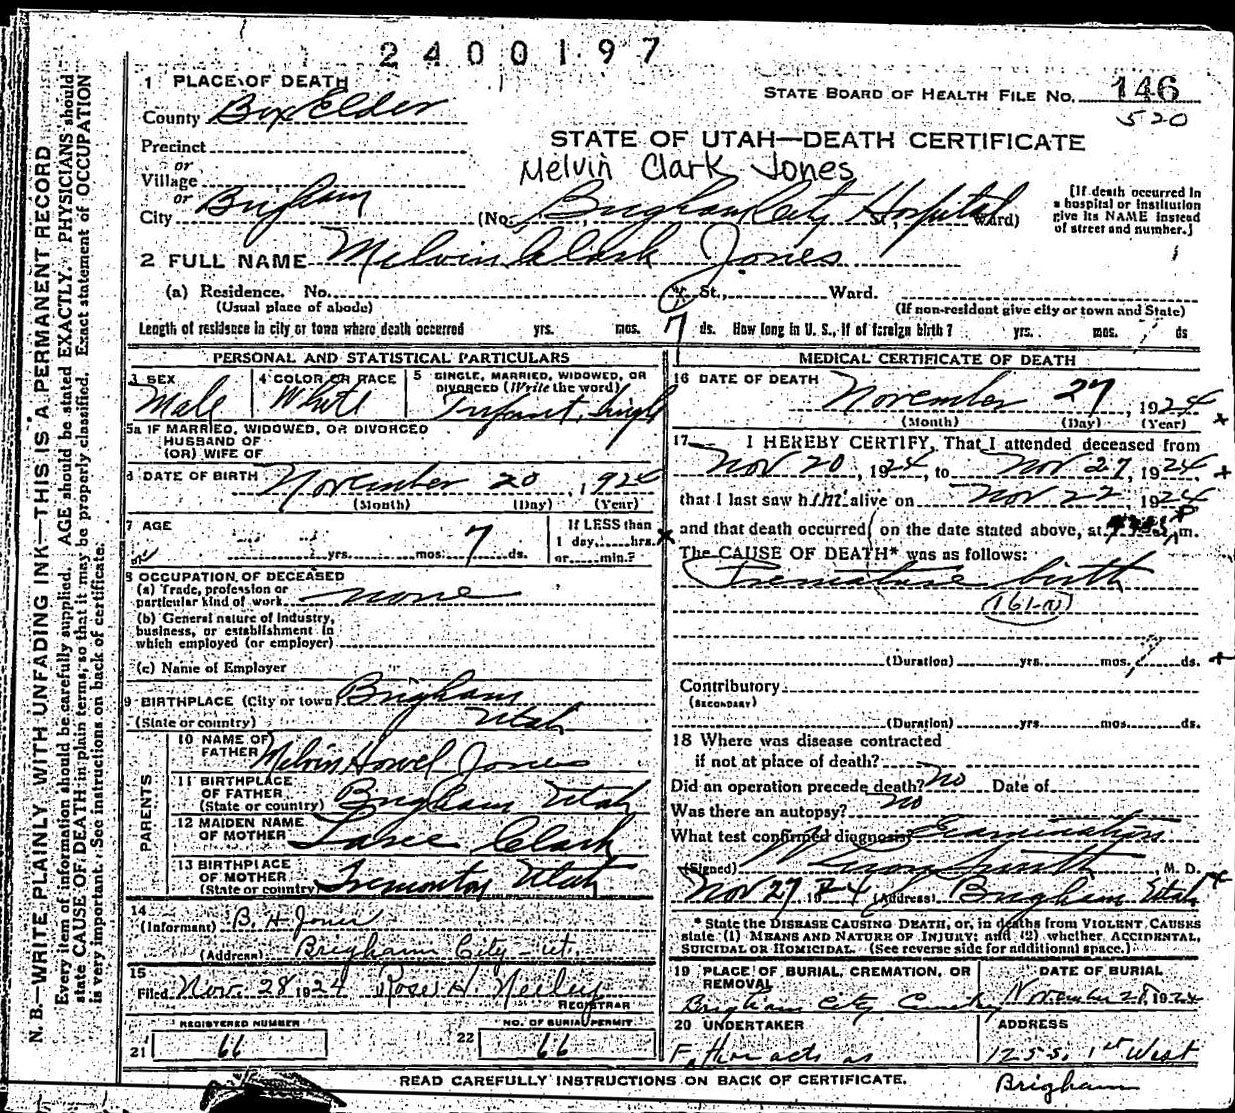 2400197
1 PLACE OF DEATH
STATE BOARD OF HEALTH FILE No. 146
520
County Box Elder
STATE OF UTAH—DEATH CERTIFICATE
Precinct
Melvin Clark Jones
or
Village
or
City Brigham (No. Brigham City Hospital St., Ward)
[If death occurred in a hospital or institution give its NAME instead of street and number.]
2 FULL NAME Melvin Clark Jones
(a) Residence. No. St., Ward.
(Usual place of abode) (If non-resident give city or town and State)
Length of residence in city or town where death occurred yrs. mos. 7 ds. How long in U. S., if of foreign birth? yrs. mos. ds
PERSONAL AND STATISTICAL PARTICULARS
3 SEX Male
4 COLOR OR RACE White
5 SINGLE, MARRIED, WIDOWED, OR DIVORCED (Write the word) Infant, Single
5a IF MARRIED, WIDOWED, OR DIVORCED
HUSBAND OF
(OR) WIFE OF
6 DATE OF BIRTH November 20, 1924
(Month) (Day) (Year)
7 AGE yrs. mos. 7 ds.
If LESS than
1 day, hrs.
or min.?
8 OCCUPATION OF DECEASED
(a) Trade, profession or
particular kind of work none
(b) General nature of industry,
business, or establishment in
which employed (or employer)
(c) Name of Employer
9 BIRTHPLACE (City or town) Brigham
(State or country) Utah
PARENTS
10 NAME OF FATHER Melvin Howel Jones
11 BIRTHPLACE OF FATHER (State or country) Brigham Utah
12 MAIDEN NAME OF MOTHER Clark
13 BIRTHPLACE OF MOTHER (State or country) Tremonton Utah
14
(Informant) B. H. Jones
(Address) Brigham City - Ut.
15
Filed Nov. 28 1924 Rose H. Neeley
REGISTRAR
REGISTERED NUMBER
21 66
NO. OF BURIAL PERMIT
22 66
MEDICAL CERTIFICATE OF DEATH
16 DATE OF DEATH November 27, 1924
(Month) (Day) (Year)
17 I HEREBY CERTIFY, That I attended deceased from
Nov 20, 1924, to Nov 27, 1924
that I last saw him alive on Nov 22 1924
and that death occurred on the date stated above, at m.
The CAUSE OF DEATH* was as follows:
Premature birth
(161-a)
(Duration) yrs. mos. 7 ds.
Contributory
(SECONDARY)
(Duration) yrs. mos. ds.
18 Where was disease contracted
if not at place of death?
Did an operation precede death? no Date of
Was there an autopsy? no
What test confirmed diagnosis? Examination
(Signed) Smith M. D.
Nov 27 1924 (Address) Brigham Utah
* State the DISEASE CAUSING DEATH, or, in deaths from VIOLENT CAUSES
state (1) MEANS AND NATURE OF INJURY; and (2) whether ACCIDENTAL,
SUICIDAL OR HOMICIDAL. (See reverse side for additional space.)
19 PLACE OF BURIAL, CREMATION, OR REMOVAL
Brigham City Cemetery
DATE OF BURIAL
November 28, 1924
20 UNDERTAKER
Father acts as
ADDRESS
125 S. 1st West
Brigham
READ CAREFULLY INSTRUCTIONS ON BACK OF CERTIFICATE.
N. B.—WRITE PLAINLY WITH UNFADING INK—THIS IS A PERMANENT RECORD
Every item of information should be carefully supplied. AGE should be stated EXACTLY. PHYSICIANS should
state CAUSE OF DEATH in plain terms, so that it may be properly classified. Exact statement of OCCUPATION
is very important. See instructions on back of certificate.